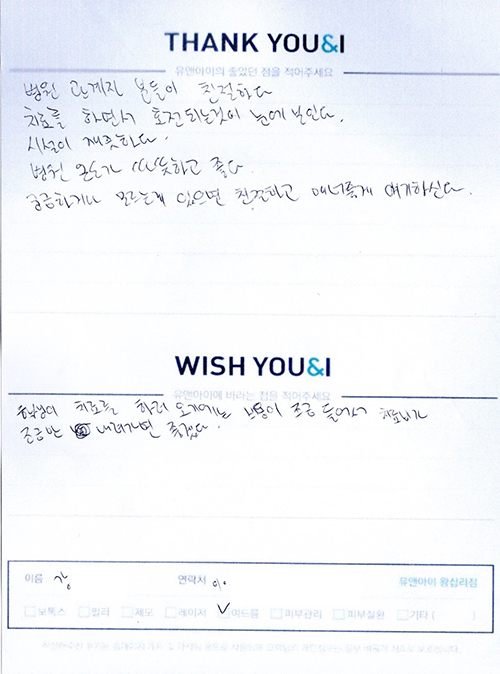 THANK YOU&I
유앤아이의 좋았던 점을 적어주세요
병원 관계자 분들이 친절하다
치료를 하면서 호전되는것이 눈에 보인다.
시설이 깨끗하다.
병원 온도가 따뜻하고 좋다.
궁금하거나 모르는게 있으면 친절하고 얘기하신다.
WISH YOU&I
유앤아이에 바라는 점을 적어주세요
학생이 치료를 하러 오기에는 비용이 조금 들어서 치료비가
조금만 내려가면 좋겠다.
이름 강
연락처 01
유앤아이 왕십리점
보톡스 필러 제모 레이저 여드름 피부관리 피부질환 기타 ( )